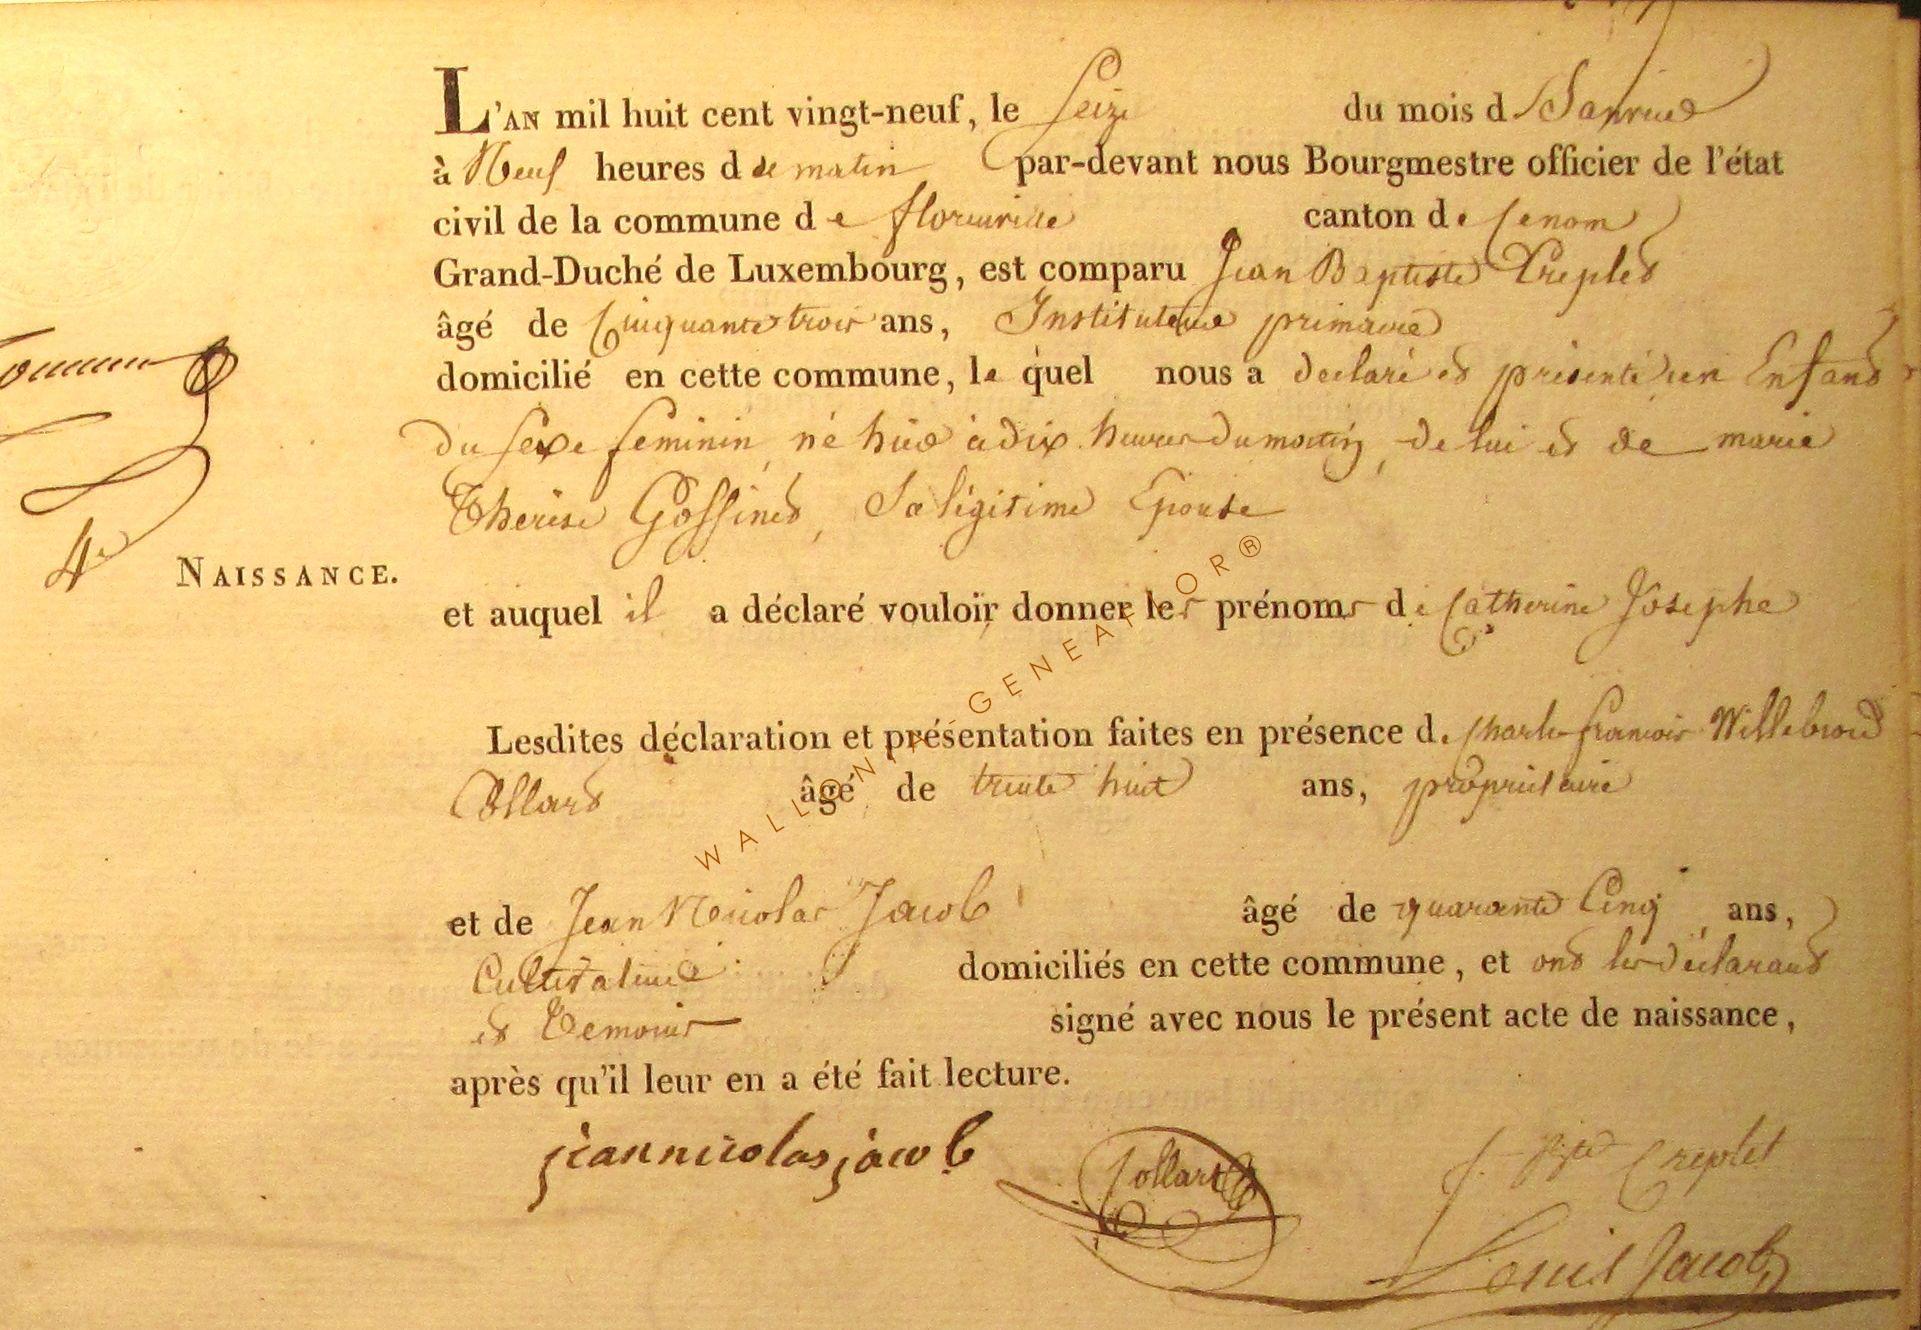 L'AN mil huit cent vingt-neuf, le Seize du mois d Janvier
à Neuf heures d de matin par-devant nous Bourgmestre officier de l'état
civil de la commune de florenville canton de
Grand-Duché de Luxembourg, est comparu Jean Baptiste Creplet
âgé de Cinquante trois ans, Instituteur primaire
domicilié en cette commune, le quel nous a declaré et présenté un Enfant
du sexe feminin, né hier à dix heures du matin, de lui et de marie
Therese Gossinet, Sa légitime Epouse
4e NAISSANCE.
et auquel il a déclaré vouloir donner les prénoms de Catherine Josephe
Lesdites déclaration et présentation faites en présence de Charles francois Willebrord
Collard âgé de trente huit ans, propriétaire
et de Jean Nicolas Jacob âgé de quarante Cinq ans,
Cultivateur domiciliés en cette commune, et ont les déclarant
et Temoins signé avec nous le présent acte de naissance,
après qu'il leur en a été fait lecture.
jean nicolas jacob Collard J. Bte Creplet
Louis Jacob
WALLONIA GENEATOR®